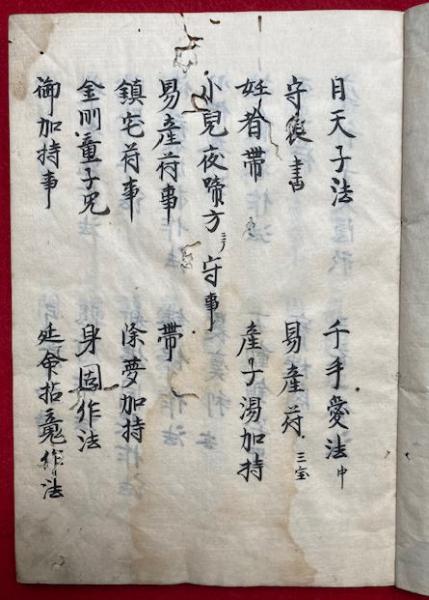 月天子法　千手愛法中
守袋書　易産符三宝
妊者帯　産子湯加持
小児夜啼方守事
易産符事　帯
鎮宅符事　除夢加持
金剛童子咒　身固作法
御加持事　延命招魂作法